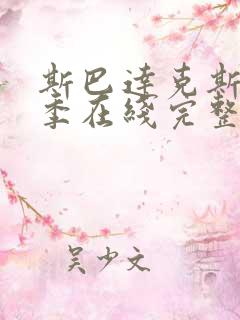 斯巴达克斯
季在线完整
吴少文